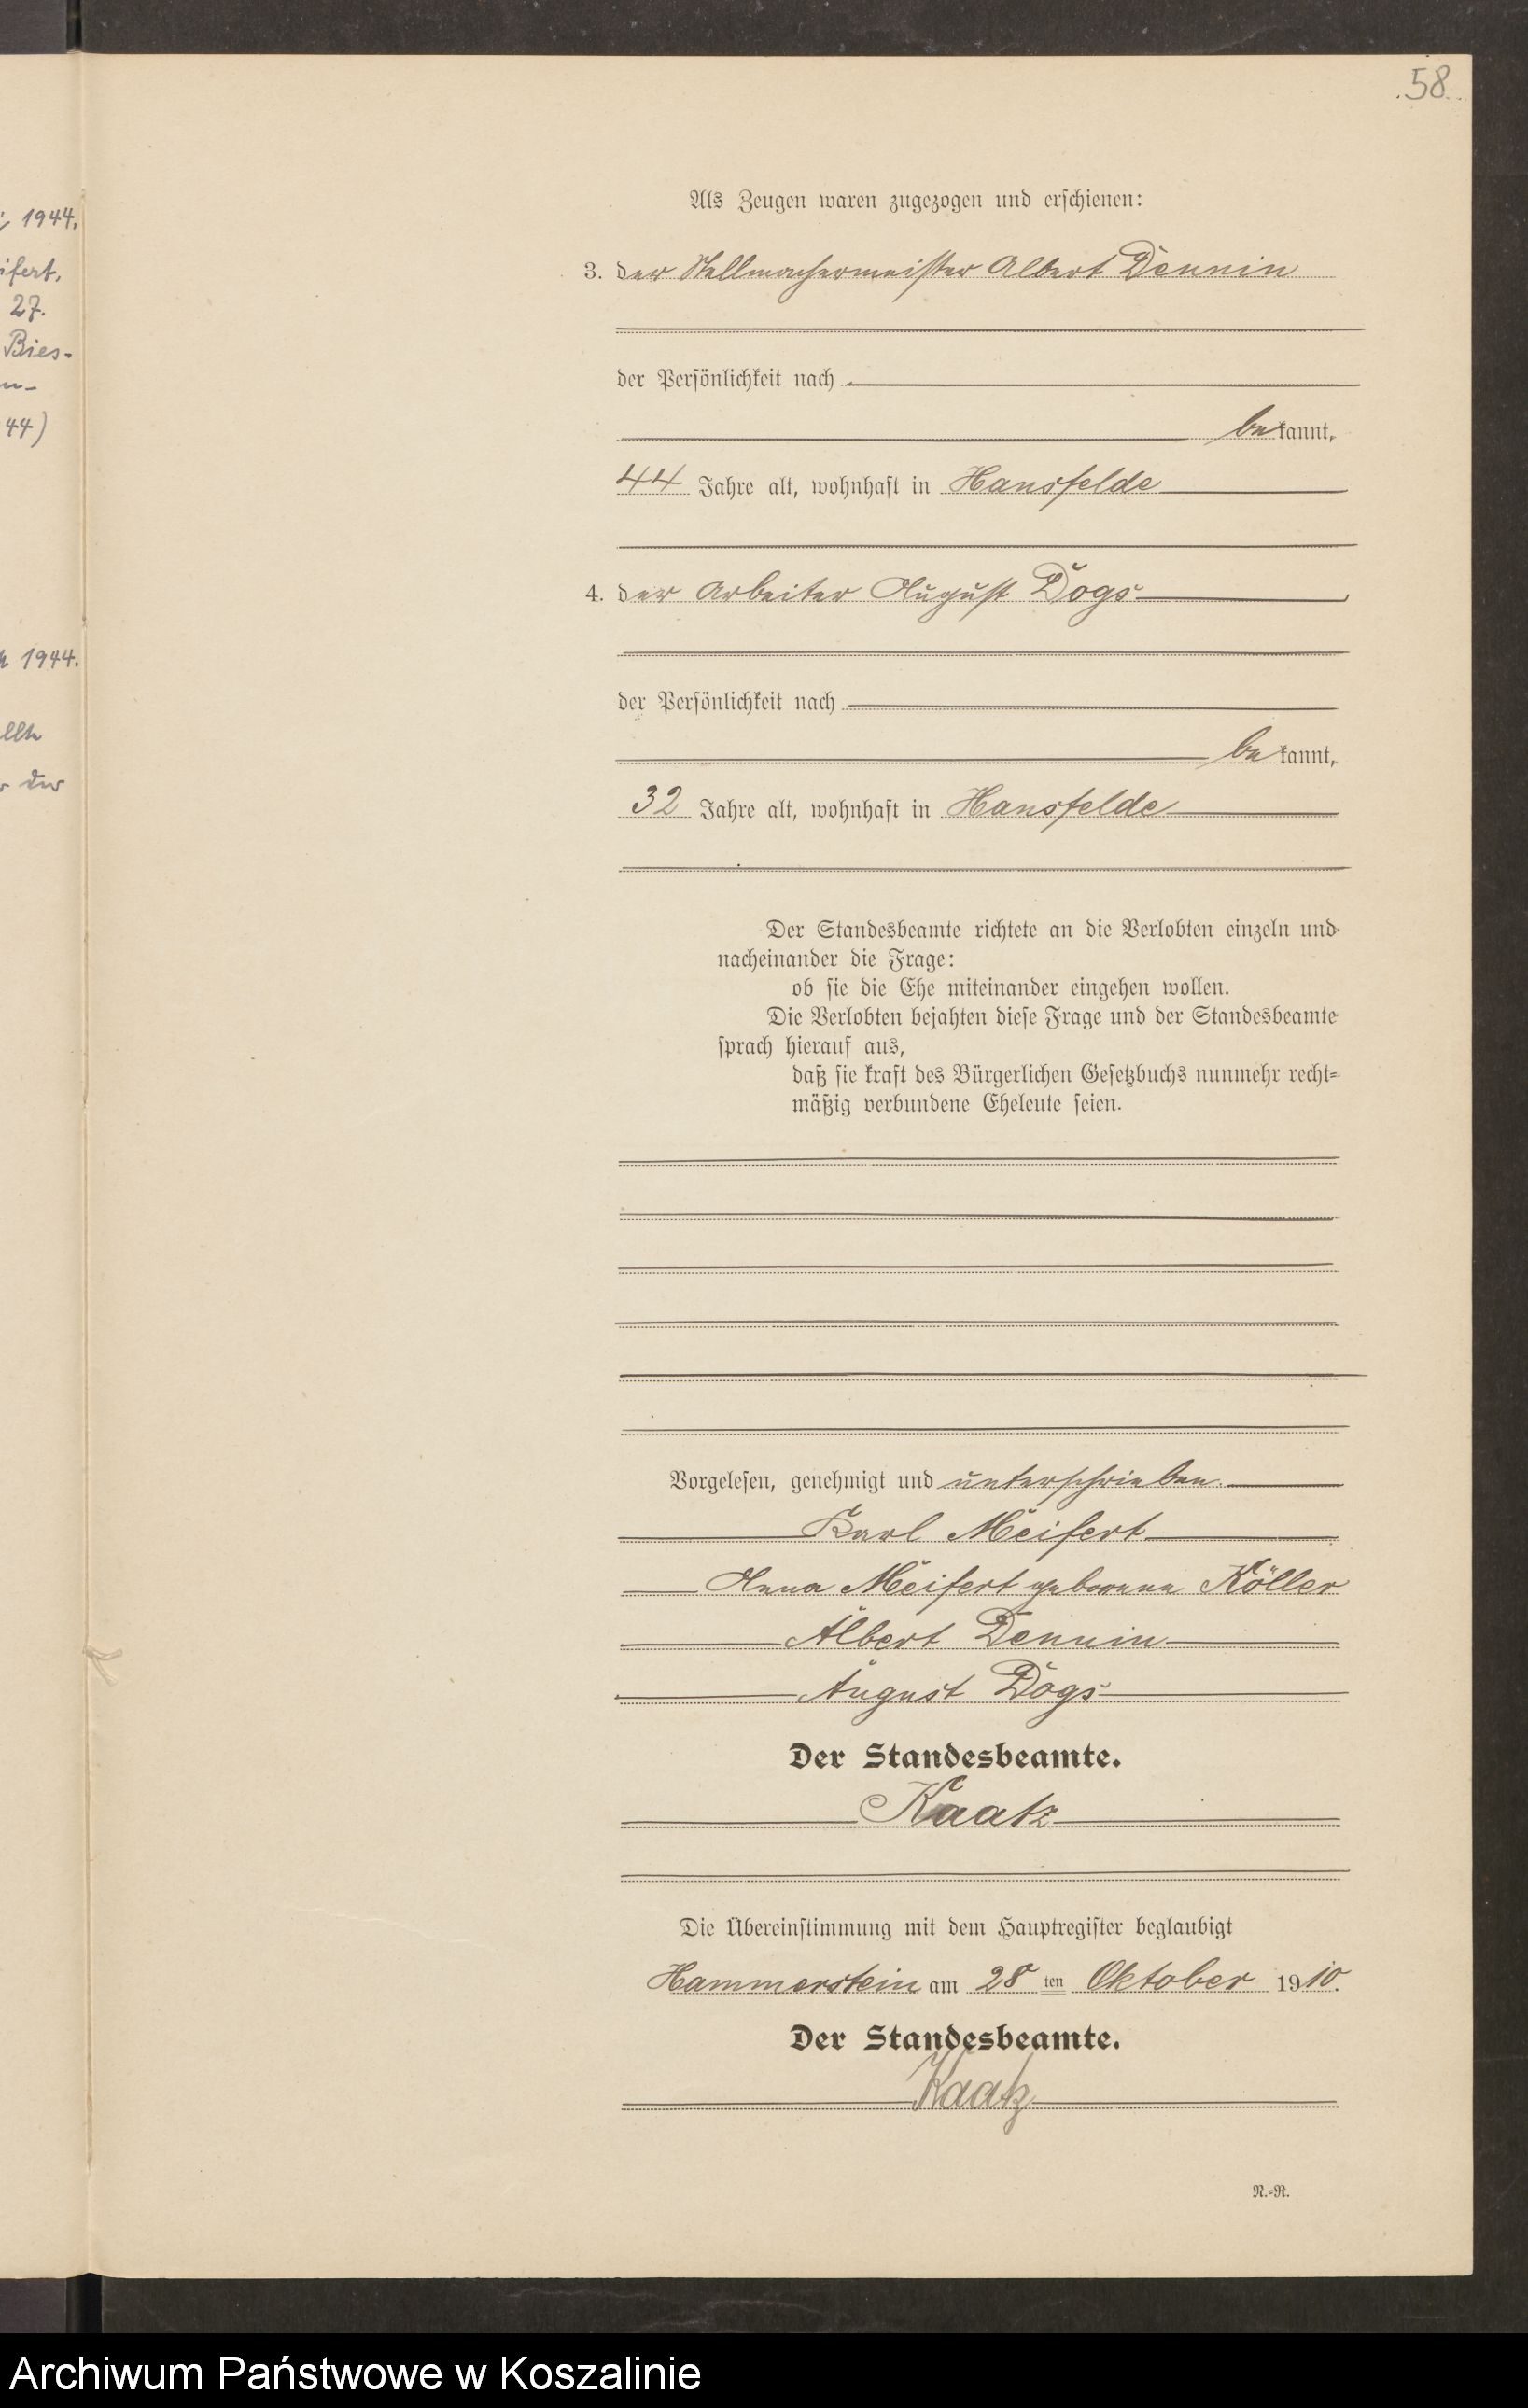 58.
1944.
ifert,
27.
Bies-
44)
1944.
der
Als Zeugen waren zugezogen und erschienen:
3. der Stellmachermeister Albert Dennin
der Persönlichkeit nach
bekannt,
44 Jahre alt, wohnhaft in Hansfelde
4. der Arbeiter August Dogs
der Persönlichkeit nach
bekannt,
32 Jahre alt, wohnhaft in Hansfelde
Der Standesbeamte richtete an die Verlobten einzeln und
nacheinander die Frage:
ob sie die Ehe miteinander eingehen wollen.
Die Verlobten bejahten diese Frage und der Standesbeamte
sprach hierauf aus,
daß sie kraft des Bürgerlichen Gesetzbuchs nunmehr recht=
mäßig verbundene Eheleute seien.
Vorgelesen, genehmigt und unterschrieben.
Karl Meifert
Anna Meifert geborene Köller
Albert Dennin
August Dogs
Der Standesbeamte.
Kaatz
Die Übereinstimmung mit dem Hauptregister beglaubigt
Hammerstein am 28 ten Oktober 1910.
Der Standesbeamte.
Kaatz
N.=R.
Archiwum Państwowe w Koszalinie